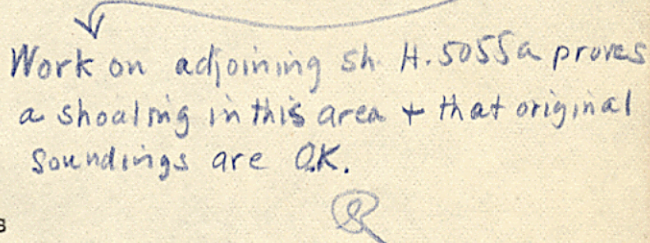 Work on adjoining sh. H.5055a proves
a shoaling in this area + that original
soundings are OK.